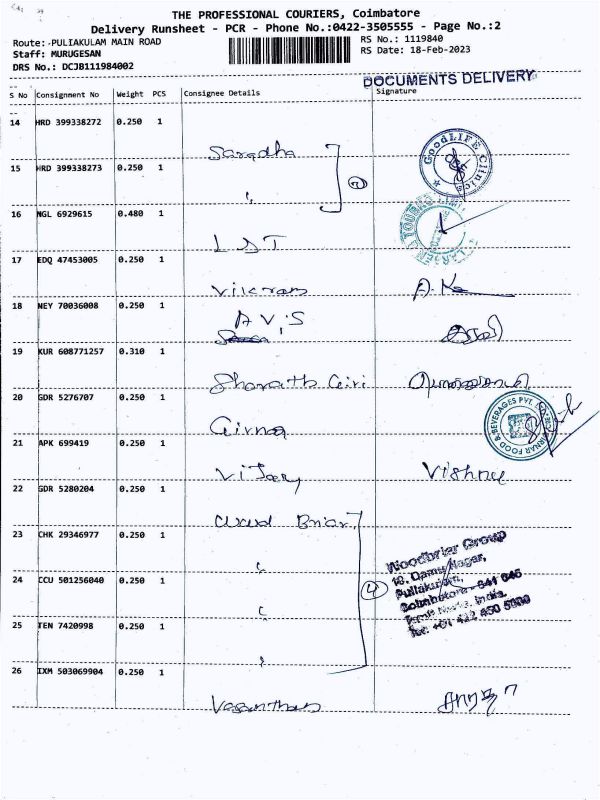 THE PROFESSIONAL COURIERS, Coimbatore
Delivery Runsheet - PCR - Phone No.:0422-3505555 - Page No.:2
Route: -PULIAKULAM MAIN ROAD
RS No.: 1119840
Staff: MURUGESAN
RS Date: 18-Feb-2023
DRS No.: DCJB111984002
DOCUMENTS DELIVERY
S No Consignment No Weight PCS Consignee Details Signature
14 HRD 399338272 0.250 1
Saradha
GoodLIFE Clinics
15 HRD 399338273 0.250 1
2
16 NGL 6929615 0.480 1
17 EDQ 47453005 0.250 1
Vikram
18 NEY 70036008 0.250 1
A.V.S
19 KUR 608771257 0.310 1
Sharath Giri
20 GDR 5276707 0.250 1
Girnar
GIRNAR FOOD & BEVERAGES PVT
21 APK 699419 0.250 1
Vijay Vishnu
22 GDR 5280204 0.250 1
Wood Briar
23 CHK 29346977 0.250 1
Woodbriar Group
18, Damu Nagar,
24 CCU 501256040 0.250 1
4
Puliakulam,
Coimbatore - 641 045
Tamil Nadu, India.
25 TEN 7420998 0.250 1
26 IXM 503069904 0.250 1
Vasanthan